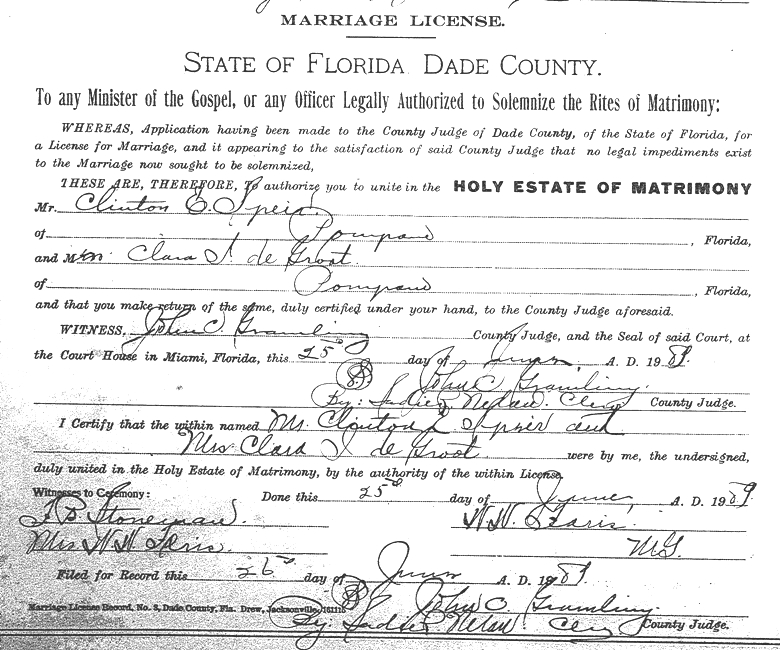 MARRIAGE LICENSE.
STATE OF FLORIDA DADE COUNTY.
To any Minister of the Gospel, or any Officer Legally Authorized to Solemnize the Rites of Matrimony:
WHEREAS, Application having been made to the County Judge of Dade County, of the State of Florida, for
a License for Marriage, and it appearing to the satisfaction of said County Judge that no legal impediments exist
to the Marriage now sought to be solemnized,
THESE ARE, THEREFORE, To authorize you to unite in the HOLY ESTATE OF MATRIMONY
Mr. Clinton E. Speir
of Pompano, Florida,
and Mrs. Clara I. de Groot
of Pompano, Florida,
and that you make return of the same, duly certified under your hand, to the County Judge aforesaid.
WITNESS, John C Gramling County Judge, and the Seal of said Court, at
the Court House in Miami, Florida, this 25th day of June, A. D. 19
John C. Gramling.
By: Sadie County Judge.
I Certify that the within named Mr. Clinton Spier and
Mrs Clara I de Groot were by me, the undersigned,
duly united in the Holy Estate of Matrimony, by the authority of the within License.
Witnesses to Ceremony: Done this 25th day of June, A. D. 19
F. B. Stoneman. W. W. Faris.
Mrs W. W. Faris. M.G.
Filed for Record this 26th day of June A. D. 19
John C. Gramling
Marriage License Record, No. 3, Dade County, Fla. Drew, Jacksonville,
By: Sadie County Judge.